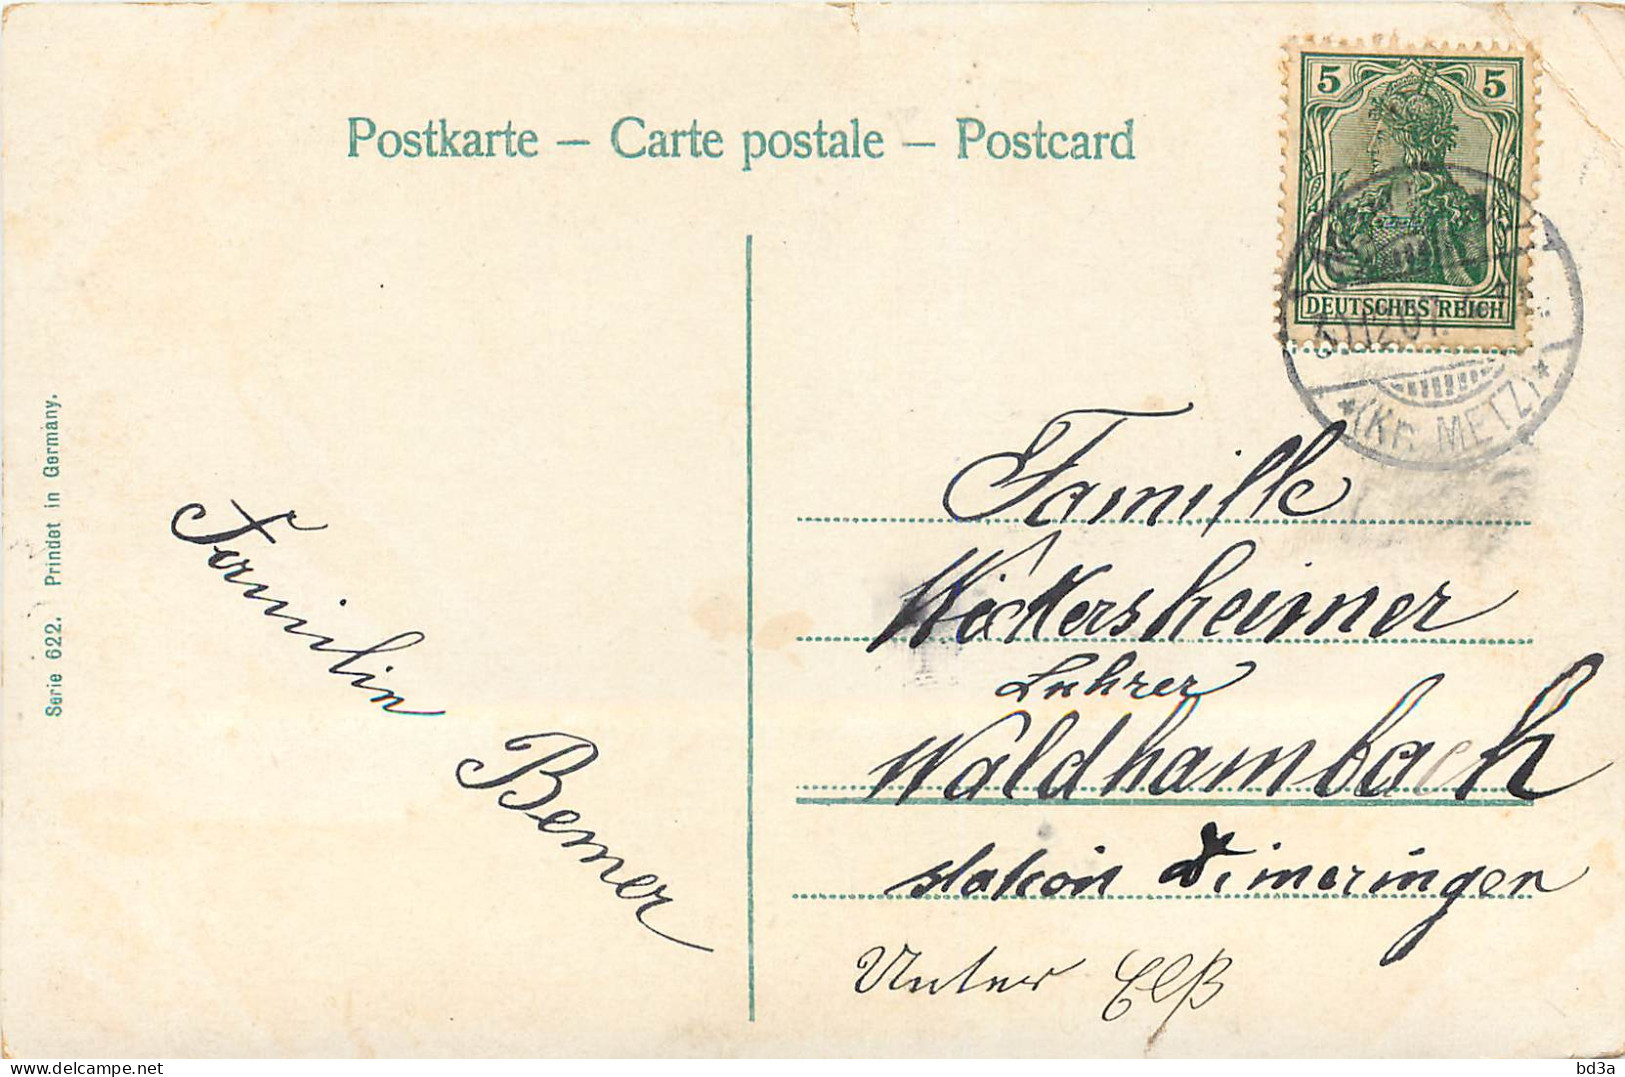 Postkarte – Carte postale – Postcard
5 5
DEUTSCHES REICH
*(KR. METZ)*
Serie 622. Prindet in Germany.
Familin
Bemer
Famille
Wickersheimer
Luhrer
Waldhambach
station Dimeringen
Unter Elß
bd3a